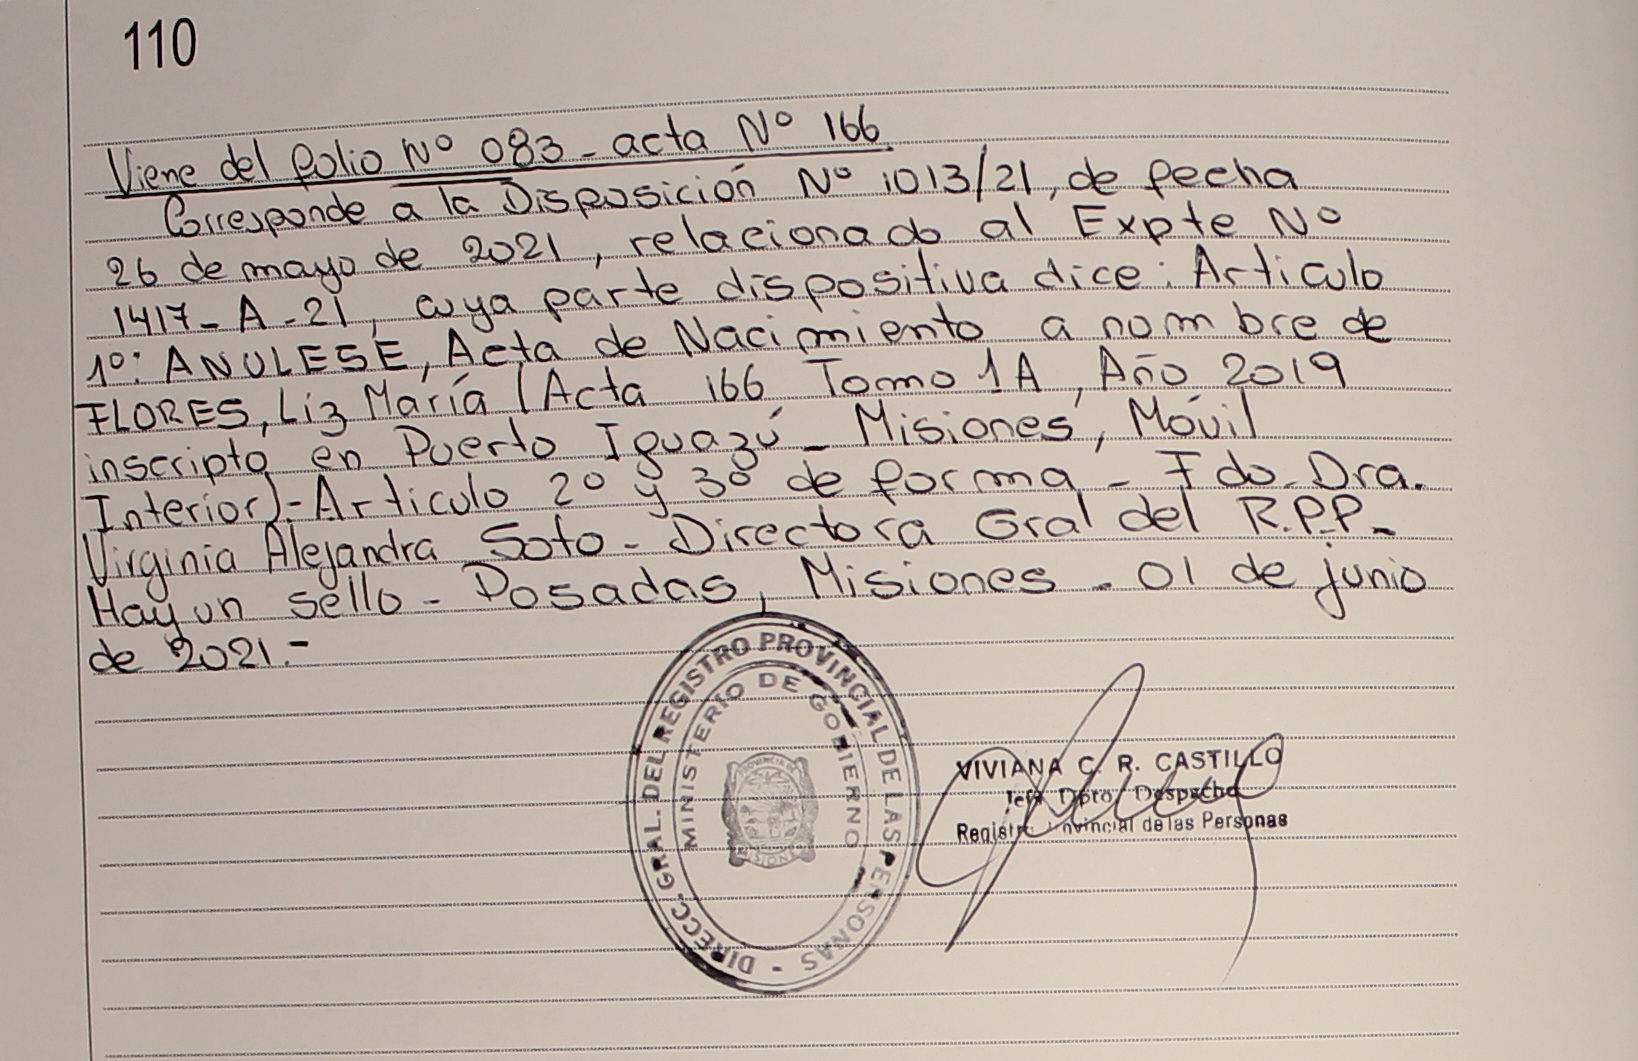 110
Viene del folio Nº 083 - acta Nº 166
Corresponde a la Disposición Nº 1013/21, de fecha
26 de mayo de 2021, relacionado al Expte Nº
1417 - A - 21, cuya parte dispositiva dice: Articulo
1º: ANULESE, Acta de Nacimiento a nombre de
FLORES, Liz María (Acta 166 Tomo 1A, Año 2019
inscripta en Puerto Iguazú - Misiones, Móvil
Interior).- Articulo 2º y 3º de forma - Fdo. Dra.
Virginia Alejandra Soto - Directora Gral del R.P.P.-
Hay un sello - Posadas, Misiones - 01 de junio
de 2021.-
DIRECC. GRAL. DEL REGISTRO PROVINCIAL DE LAS PERSONAS -
MINISTERIO DE GOBIERNO
PROVINCIA DE
MISIONES
VIVIANA C. R. CASTILLO
Jefa Dpto. Despacho
Registro Provincial de las Personas